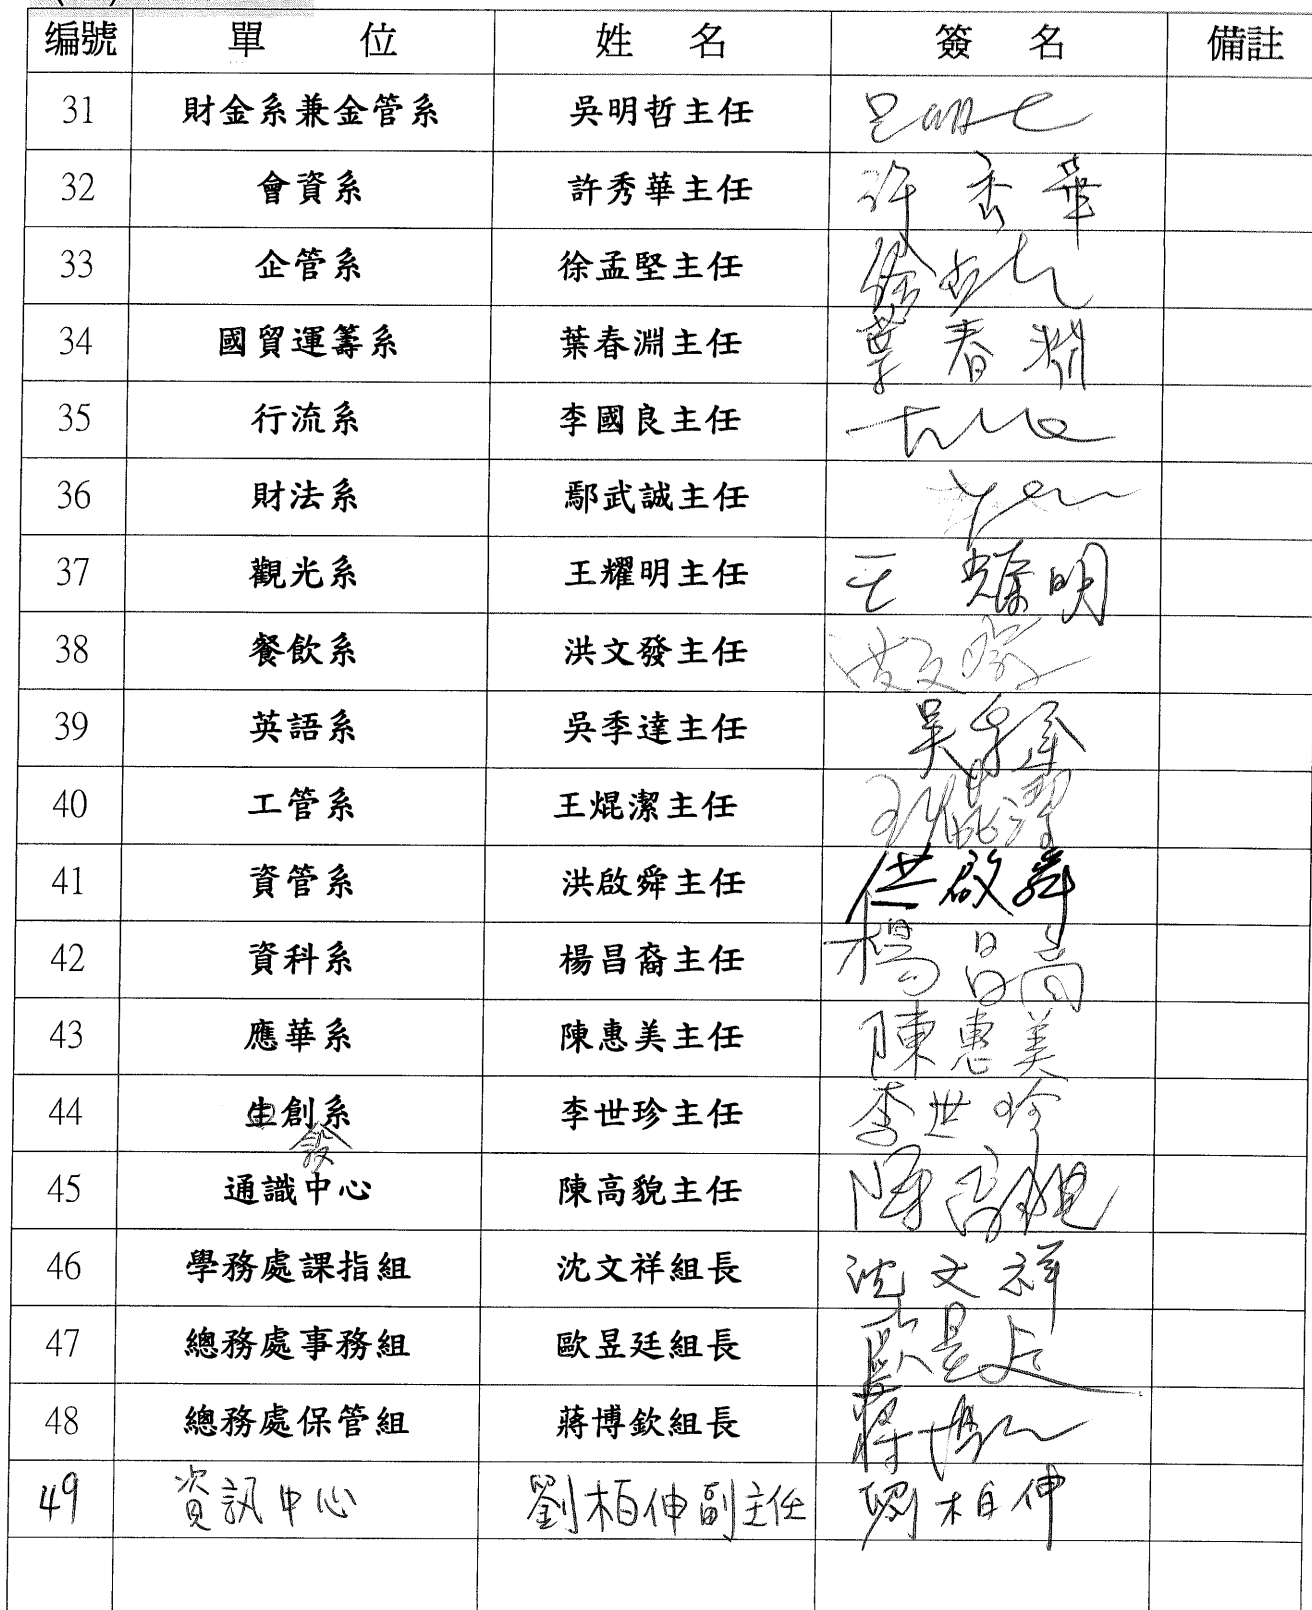 編號 單位 姓名 簽名 備註
31 財金系兼金管系 吳明哲主任
32 會資系 許秀華主任 許秀華
33 企管系 徐孟堅主任
34 國貿運籌系 葉春淵主任 葉春淵
35 行流系 李國良主任
36 財法系 鄢武誠主任
37 觀光系 王耀明主任 王耀明
38 餐飲系 洪文發主任 洪文發
39 英語系 吳季達主任 吳季達
40 工管系 王焜潔主任 王焜潔
41 資管系 洪啟舜主任 洪啟舜
42 資科系 楊昌裔主任 楊昌裔
43 應華系 陳惠美主任 陳惠美
44 生創系 李世珍主任 李世珍
45 通識中心 陳高貌主任 陳高貌
46 學務處課指組 沈文祥組長 沈文祥
47 總務處事務組 歐昱廷組長 歐昱廷
48 總務處保管組 蔣博欽組長
49 資訊中心 劉柏伸副主任 劉柏伸